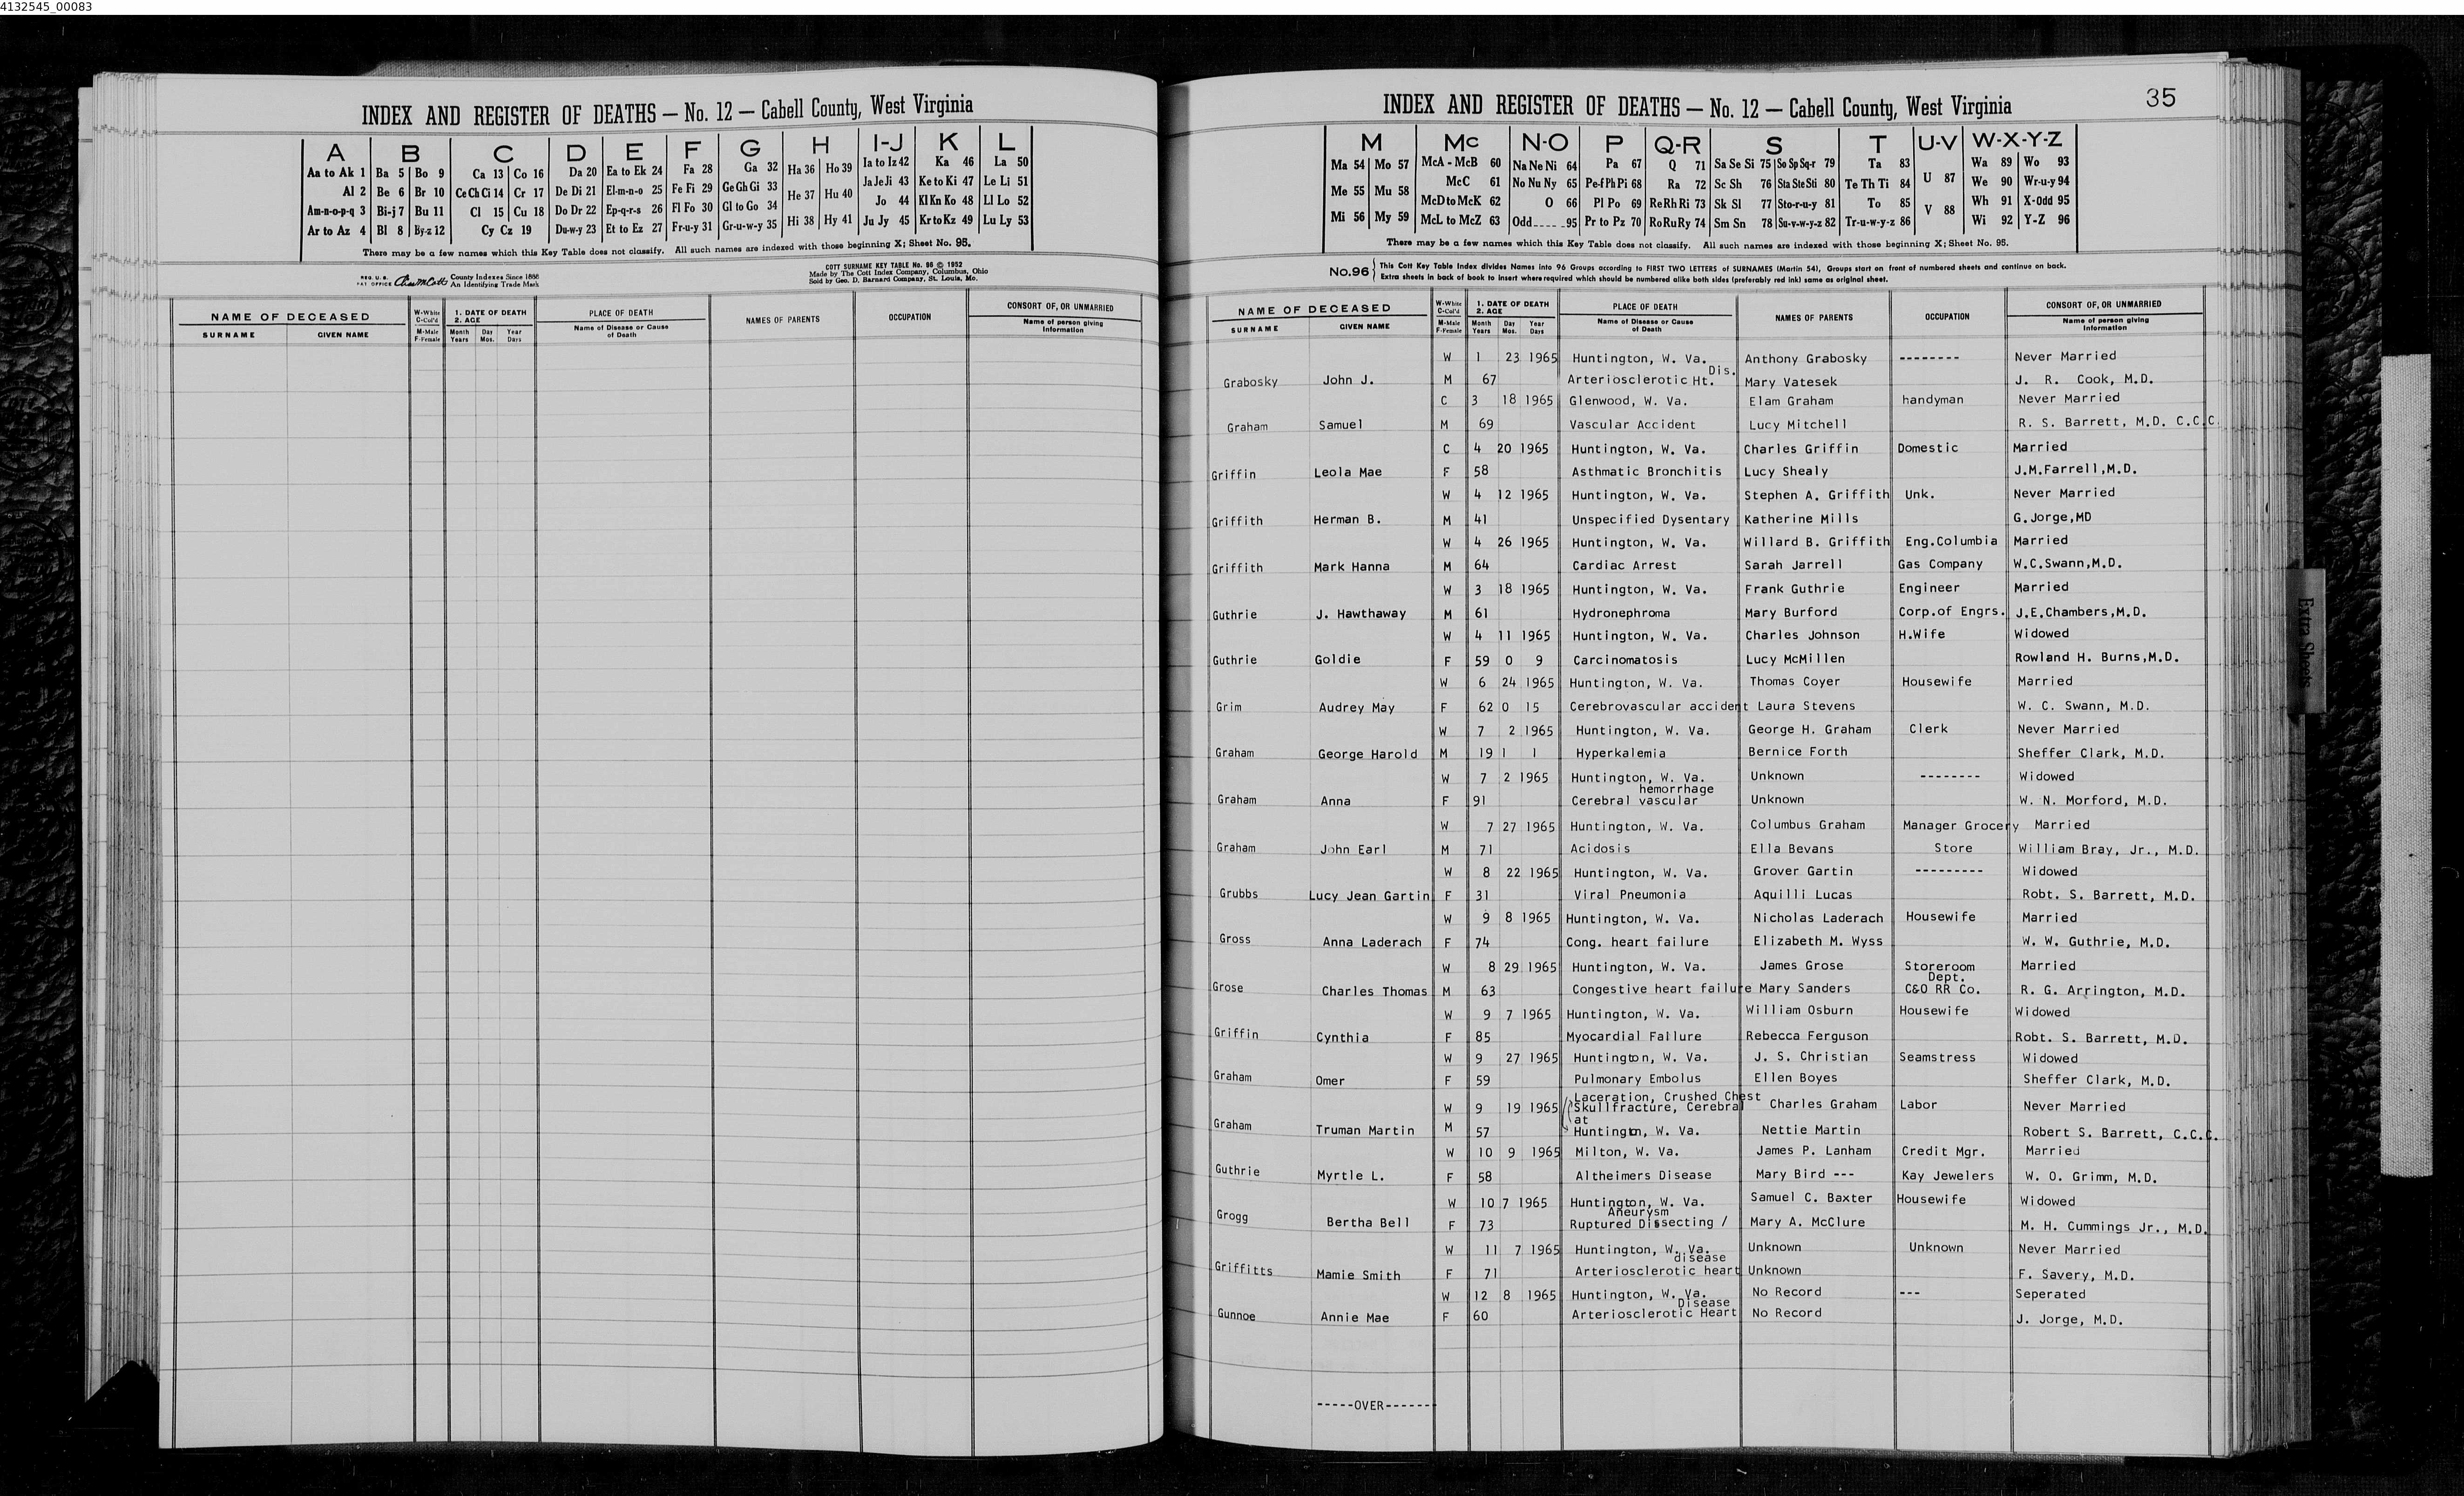 4132545_00083
INDEX AND REGISTER OF DEATHS — No. 12 — Cabell County, West Virginia
A B C D E F G H I-J K L
Aa to Ak 1 Ba 5 Bo 9 Ca 13 Co 16 Da 20 Ea to Ek 24 Fa 28 Ga 32 Ha 36 Ho 39 Ia to Iz 42 Ka 46 La 50
Al 2 Be 6 Br 10 Ce Ch Ci 14 Cr 17 De Di 21 El-m-n-o 25 Fe Fi 29 Ge Gh Gi 33 He 37 Hu 40 Ja Je Ji 43 Ke to Ki 47 Le Li 51
Am-n-o-p-q 3 Bi-j 7 Bu 11 Cl 15 Cu 18 Do Dr 22 Ep-q-r-s 26 Fl Fo 30 Gl to Go 34 Hi 38 Hy 41 Jo 44 Kl Kn Ko 48 Ll Lo 52
Ar to Az 4 Bl 8 By-z 12 Cy Cz 19 Du-w-y 23 Et to Ez 27 Fr-u-y 31 Gr-u-w-y 35 Ju Jy 45 Kr to Kz 49 Lu Ly 53
There may be a few names which this Key Table does not classify. All such names are indexed with those beginning X; Sheet No. 95.
REG. U. S. PAT OFFICE County Indexes Since 1888 An Identifying Trade Mark
COTT SURNAME KEY TABLE No. 96 © 1952
Made by The Cott Index Company, Columbus, Ohio
Sold by Geo. D. Barnard Company, St. Louis, Mo.
NAME OF DECEASED SURNAME GIVEN NAME W-White C-Col'd M-Male F-Female 1. DATE OF DEATH 2. AGE Month Day Year Years Mos. Days PLACE OF DEATH Name of Disease or Cause of Death NAMES OF PARENTS OCCUPATION CONSORT OF, OR UNMARRIED Name of person giving Information
35
INDEX AND REGISTER OF DEATHS — No. 12 — Cabell County, West Virginia
M Mc N-O P Q-R S T U-V W-X-Y-Z
Ma 54 Mo 57 McA - McB 60 Na Ne Ni 64 Pa 67 Q 71 Sa Se Si 75 So Sp Sq-r 79 Ta 83 U 87 Wa 89 Wo 93
Me 55 Mu 58 McC 61 No Nu Ny 65 Pe-f Ph Pi 68 Ra 72 Sc Sh 76 Sta Ste Sti 80 Te Th Ti 84 We 90 Wr-u-y 94
McD to McK 62 O 66 Pl Po 69 Re Rh Ri 73 Sk Sl 77 Sto-r-u-y 81 To 85 V 88 Wh 91 X-Odd 95
Mi 56 My 59 McL to McZ 63 Odd 95 Pr to Pz 70 Ro Ru Ry 74 Sm Sn 78 Su-v-w-y-z 82 Tr-u-w-y-z 86 Wi 92 Y-Z 96
There may be a few names which this Key Table does not classify. All such names are indexed with those beginning X; Sheet No. 95.
No.96 This Cott Key Table Index divides Names into 96 Groups according to FIRST TWO LETTERS of SURNAMES (Martin 54), Groups start on front of numbered sheets and continue on back.
Extra sheets in back of book to insert where required which should be numbered alike both sides (preferably red ink) same as original sheet.
NAME OF DECEASED SURNAME GIVEN NAME W-White C-Col'd M-Male F-Female 1. DATE OF DEATH 2. AGE Month Day Year Years Mos. Days PLACE OF DEATH Name of Disease or Cause of Death NAMES OF PARENTS OCCUPATION CONSORT OF, OR UNMARRIED Name of person giving Information
W 1 23 1965 Huntington, W. Va. Anthony Grabosky -------- Never Married
Dis.
Grabosky John J. M 67 Arteriosclerotic Ht. Mary Vatesek J. R. Cook, M.D.
C 3 18 1965 Glenwood, W. Va. Elam Graham handyman Never Married
Graham Samuel M 69 Vascular Accident Lucy Mitchell R. S. Barrett, M.D. C.C.C.
C 4 20 1965 Huntington, W. Va. Charles Griffin Domestic Married
Griffin Leola Mae F 58 Asthmatic Bronchitis Lucy Shealy J.M.Farrell,M.D.
W 4 12 1965 Huntington, W. Va. Stephen A. Griffith Unk. Never Married
Griffith Herman B. M 41 Unspecified Dysentary Katherine Mills G.Jorge,MD
W 4 26 1965 Huntington, W. Va. Willard B. Griffith Eng.Columbia Married
Griffith Mark Hanna M 64 Cardiac Arrest Sarah Jarrell Gas Company W.C.Swann,M.D.
W 3 18 1965 Huntington, W. Va. Frank Guthrie Engineer Married
Guthrie J. Hawthaway M 61 Hydronephroma Mary Burford Corp.of Engrs. J.E.Chambers,M.D.
W 4 11 1965 Huntington, W. Va. Charles Johnson H.Wife Widowed
Guthrie Goldie F 59 0 9 Carcinomatosis Lucy McMillen Rowland H. Burns,M.D.
W 6 24 1965 Huntington, W. Va. Thomas Coyer Housewife Married
Grim Audrey May F 62 0 15 Cerebrovascular accident Laura Stevens W. C. Swann, M.D.
W 7 2 1965 Huntington, W. Va. George H. Graham Clerk Never Married
Graham George Harold M 19 1 1 Hyperkalemia Bernice Forth Sheffer Clark, M.D.
W 7 2 1965 Huntington, W. Va. Unknown -------- Widowed
hemorrhage
Graham Anna F 91 Cerebral vascular Unknown W. N. Morford, M.D.
W 7 27 1965 Huntington, W. Va. Columbus Graham Manager Grocery Married
Graham John Earl M 71 Acidosis Ella Bevans Store William Bray, Jr., M.D.
W 8 22 1965 Huntington, W. Va. Grover Gartin --------- Widowed
Grubbs Lucy Jean Gartin F 31 Viral Pneumonia Aquilli Lucas Robt. S. Barrett, M.D.
W 9 8 1965 Huntington, W. Va. Nicholas Laderach Housewife Married
Gross Anna Laderach F 74 Cong. heart failure Elizabeth M. Wyss W. W. Guthrie, M.D.
W 8 29 1965 Huntington, W. Va. James Grose Storeroom Married
Dept.
Grose Charles Thomas M 63 Congestive heart failure Mary Sanders C&O RR Co. R. G. Arrington, M.D.
W 9 7 1965 Huntington, W. Va. William Osburn Housewife Widowed
Griffin Cynthia F 85 Myocardial Failure Rebecca Ferguson Robt. S. Barrett, M.D.
W 9 27 1965 Huntington, W. Va. J. S. Christian Seamstress Widowed
Graham Omer F 59 Pulmonary Embolus Ellen Boyes Sheffer Clark, M.D.
Laceration, Crushed Chest
W 9 19 1965 Skullfracture, Cerebral Charles Graham Labor Never Married
at
Graham Truman Martin M 57 Huntington, W. Va. Nettie Martin Robert S. Barrett, C.C.C.
W 10 9 1965 Milton, W. Va. James P. Lanham Credit Mgr. Married
Guthrie Myrtle L. F 58 Altheimers Disease Mary Bird --- Kay Jewelers W. O. Grimm, M.D.
W 10 7 1965 Huntington, W. Va. Samuel C. Baxter Housewife Widowed
Aneurysm
Grogg Bertha Bell F 73 Ruptured Dissecting / Mary A. McClure M. H. Cummings Jr., M.D.
W 11 7 1965 Huntington, W. Va. Unknown Unknown Never Married
disease
Griffitts Mamie Smith F 71 Arteriosclerotic heart Unknown F. Savery, M.D.
W 12 8 1965 Huntington, W. Va. No Record --- Seperated
Disease
Gunnoe Annie Mae F 60 Arteriosclerotic Heart No Record J. Jorge, M.D.
-----OVER-------
Extra Sheets